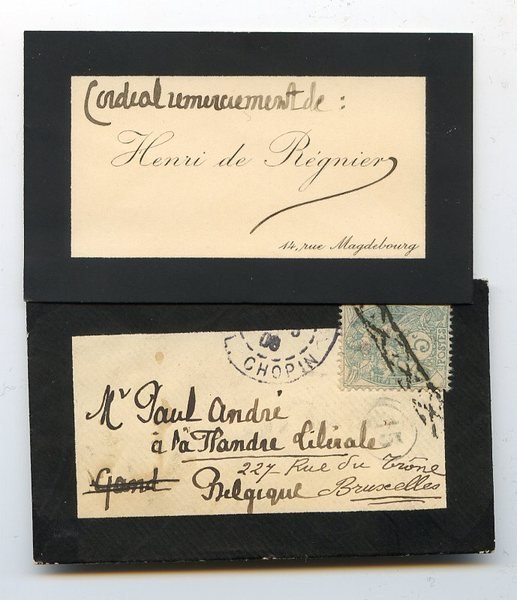 Cordial remerciement de :
Henri de Régnier
14, rue Magdebourg
08
CHOPIN
5
POSTES
15
Mr Paul André
à la Flandre libérale
227 Rue du Trône
Gand Belgique Bruxelles